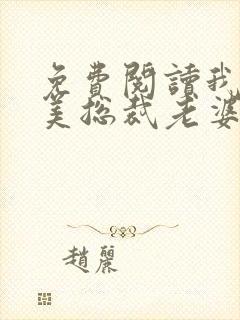 免費閱讀我
美總裁老婆
趙麗